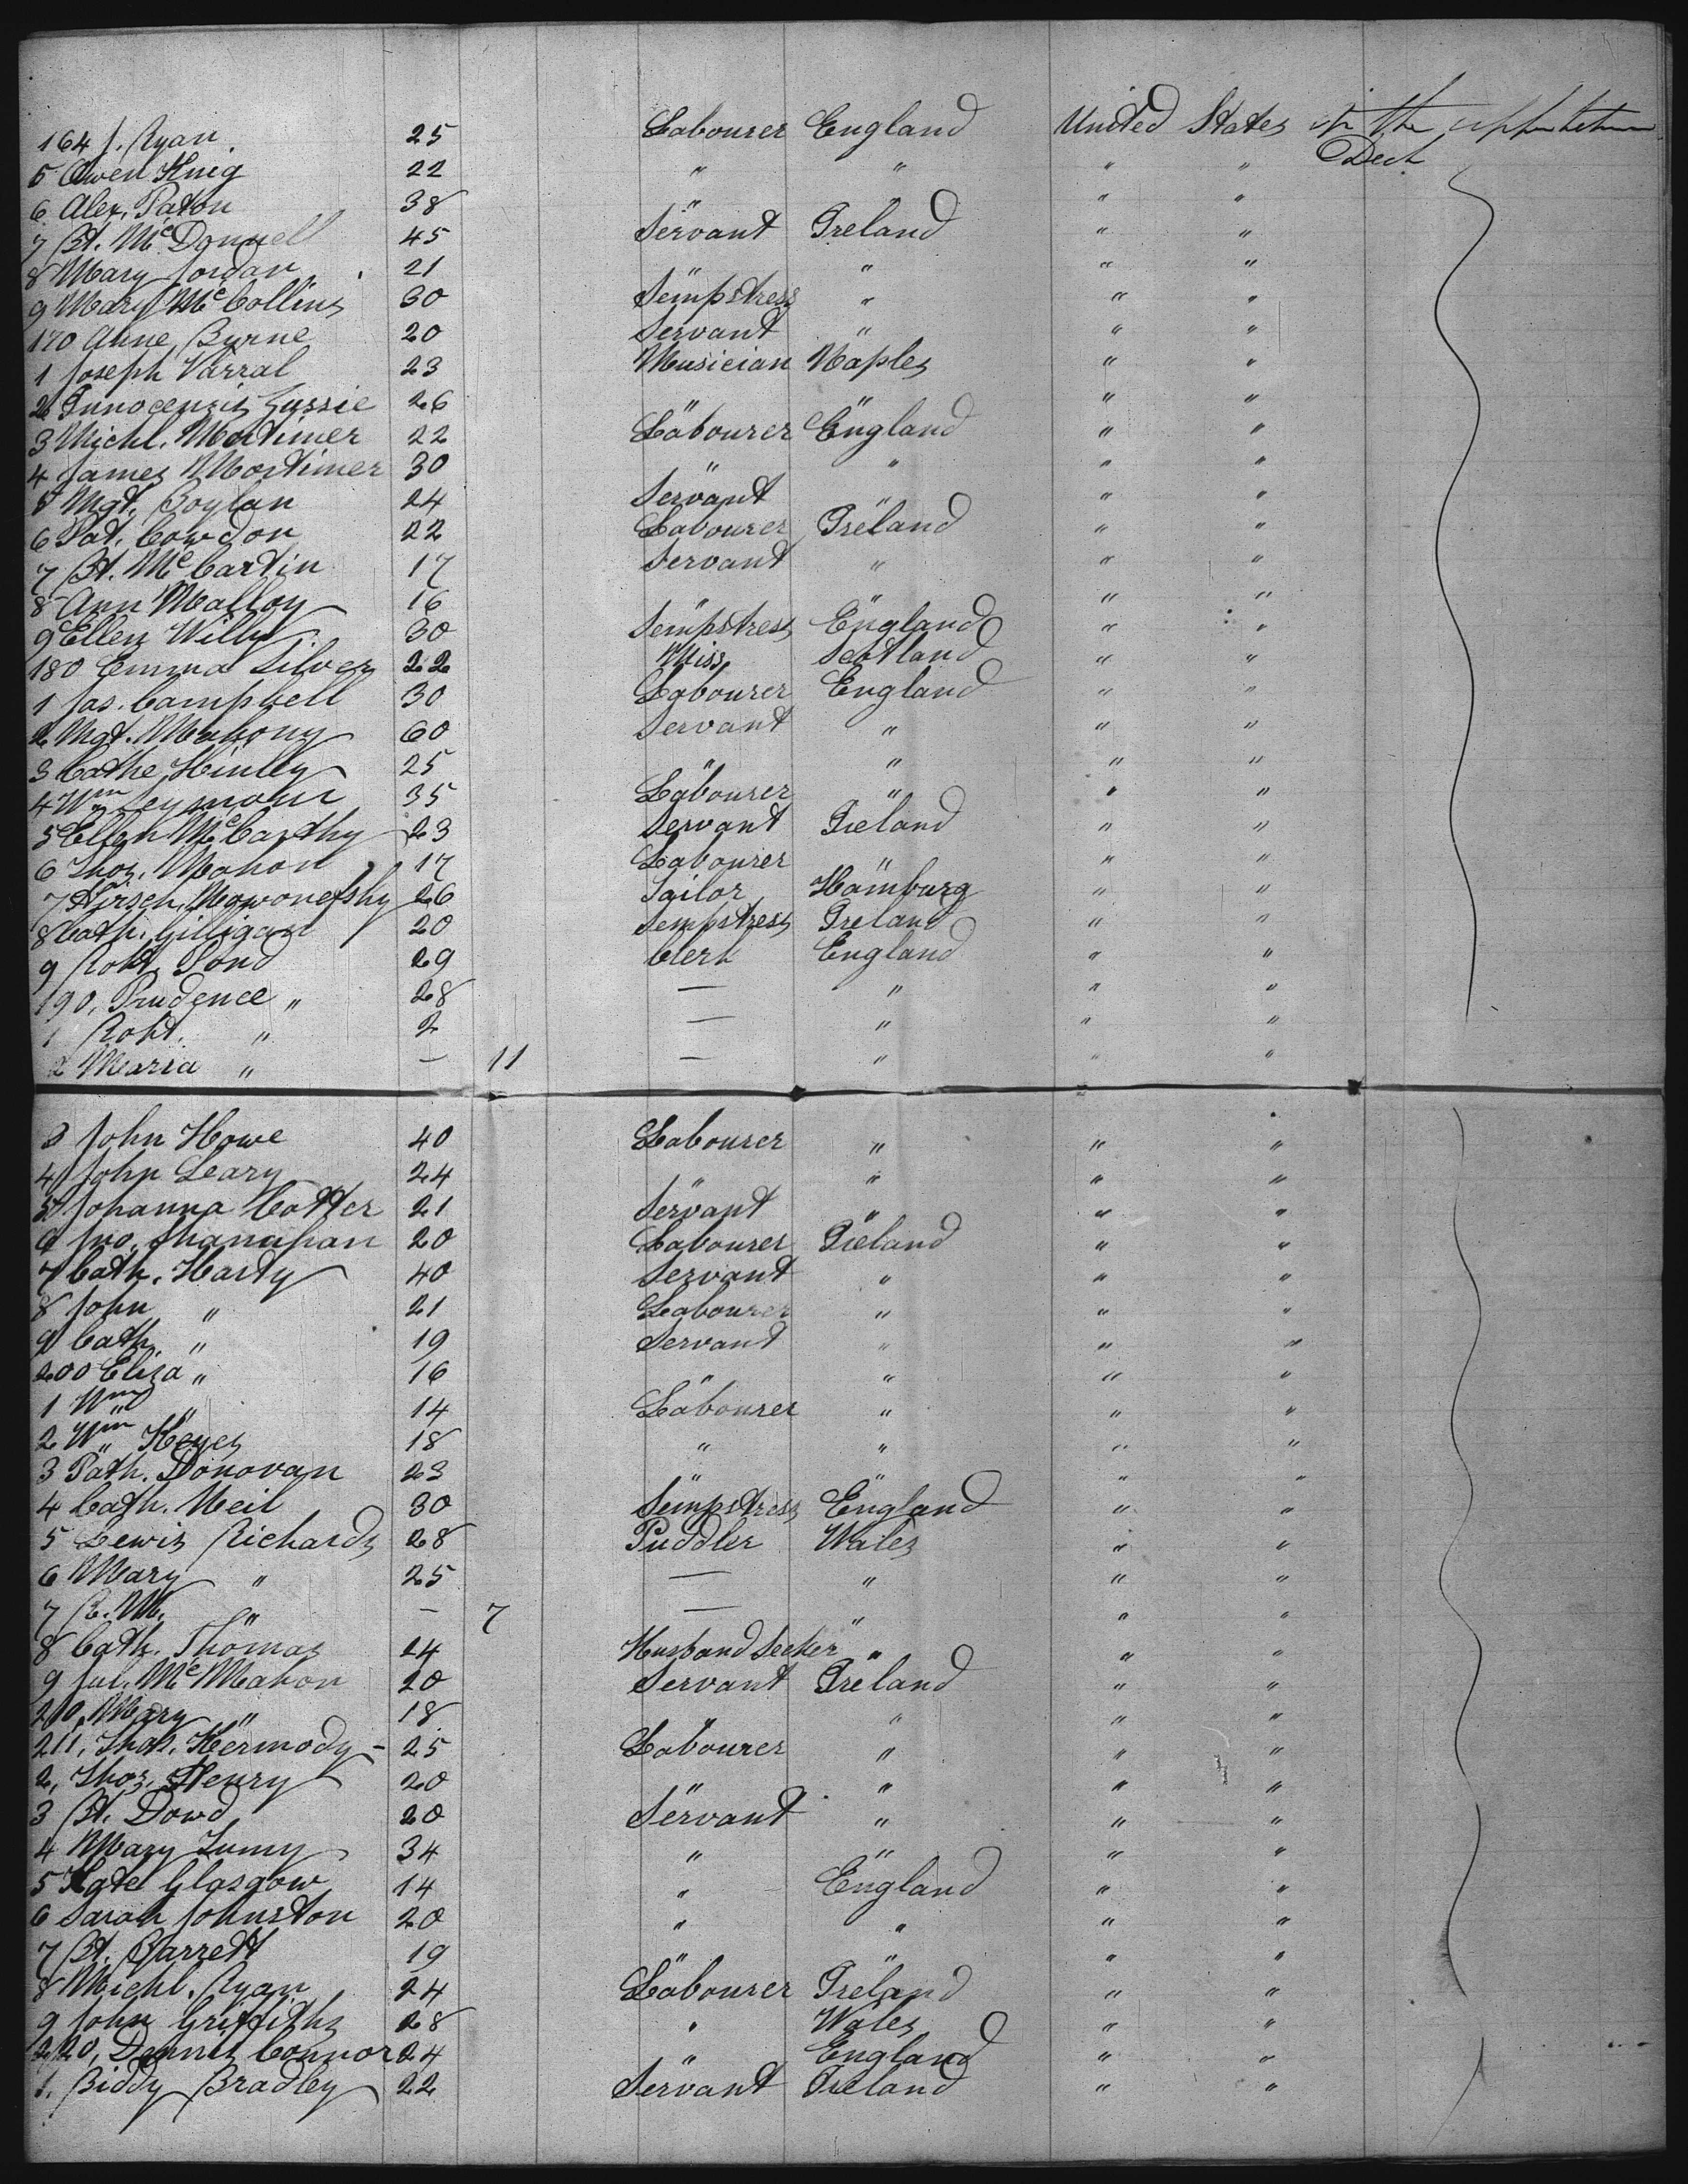 164 J. Ryan 25 Labourer England United States in the upper between
5 Owen King 22 " " " " Deck
6 Alex. Paton 38 " " " "
7 Bt. McDonnell 45 Servant Ireland " "
8 Mary Jordan 21 " " " "
9 Mary McCollins 30 Sempstress " " "
170 Anne Byrne 20 Servant " " "
1 Joseph Varral 23 Musician Naples " "
2 Innocenzis Gussie 26 " " " "
3 Michl. Mortimer 22 Labourer England " "
4 James Mortimer 30 " " " "
5 Mgt. Boylan 24 Servant " " "
6 Pat. Cowdon 22 Labourer Ireland " "
7 Bt. McCartin 17 Servant " " "
8 Ann Malloy 16 " " " "
9 Ellen Willy 30 Sempstress England " "
180 Emma Silver 22 Miss Scotland " "
1 Jas. Campbell 30 Labourer England " "
2 Mgt. Mahony 60 Servant " " "
3 Cathe Hinley 25 " " " "
4 Wm Seymour 35 Labourer " " "
5 Ellen McCarthy 23 Servant Ireland " "
6 Thos. Mahon 17 Labourer " " "
7 Hirsch 26 Tailor Hamburg " "
8 Cath. Gilligan 20 Sempstress Ireland " "
9 Robt. Pond 29 Clerk England " "
190, Prudence " 28 — " " "
1 Robt. " 2 — " " "
2 Maria " — 11 — " " "
3 John Howe 40 Labourer " " "
4 John Leary 24 " " " "
5 Johanna Cotter 21 Servant " " "
6 Jno. Shanahan 20 Labourer Ireland " "
7 Cath. Harty 40 Servant " " "
8 John " 21 Labourer " " "
9 Cath. " 19 Servant " " "
200 Eliza " 16 " " " "
1 Wm " 14 Labourer " " "
2 Wm Keyes 18 " " " "
3 Path. Donovan 23 " " " "
4 Cath. Neil 30 Sempstress England " "
5 Lewis Richards 28 Puddler Wales " "
6 Mary " 25 — " " "
7 R. M. " — 7 — " " "
8 Cath. Thomas 24 Husband Seeker " " "
9 Jul. McMahon 20 Servant Ireland " "
210, Mary " 18 " " " "
211, Thos. Kermody - 25 Labourer " " "
2, Thos. Henry 20 " " " "
3 Bt. Dowd 20 Servant " " "
4 Mary 34 " " " "
5 Kate Glasgow 14 " England " "
6 Sarah Johnston 20 " " " "
7 Bt. Barrett 19 " " " "
8 Michl. Ryan 24 Labourer Ireland " "
9 John Griffiths 28 " Wales " "
220, Dennis Connor 24 " England " "
1. Biddy Bradley 22 Servant Ireland " "